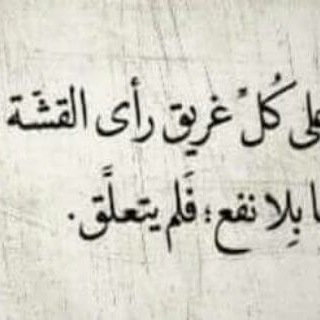 على كُلِّ غريق رأى القشّة
بِلا نفع؛ فَلم يتعلَّق.